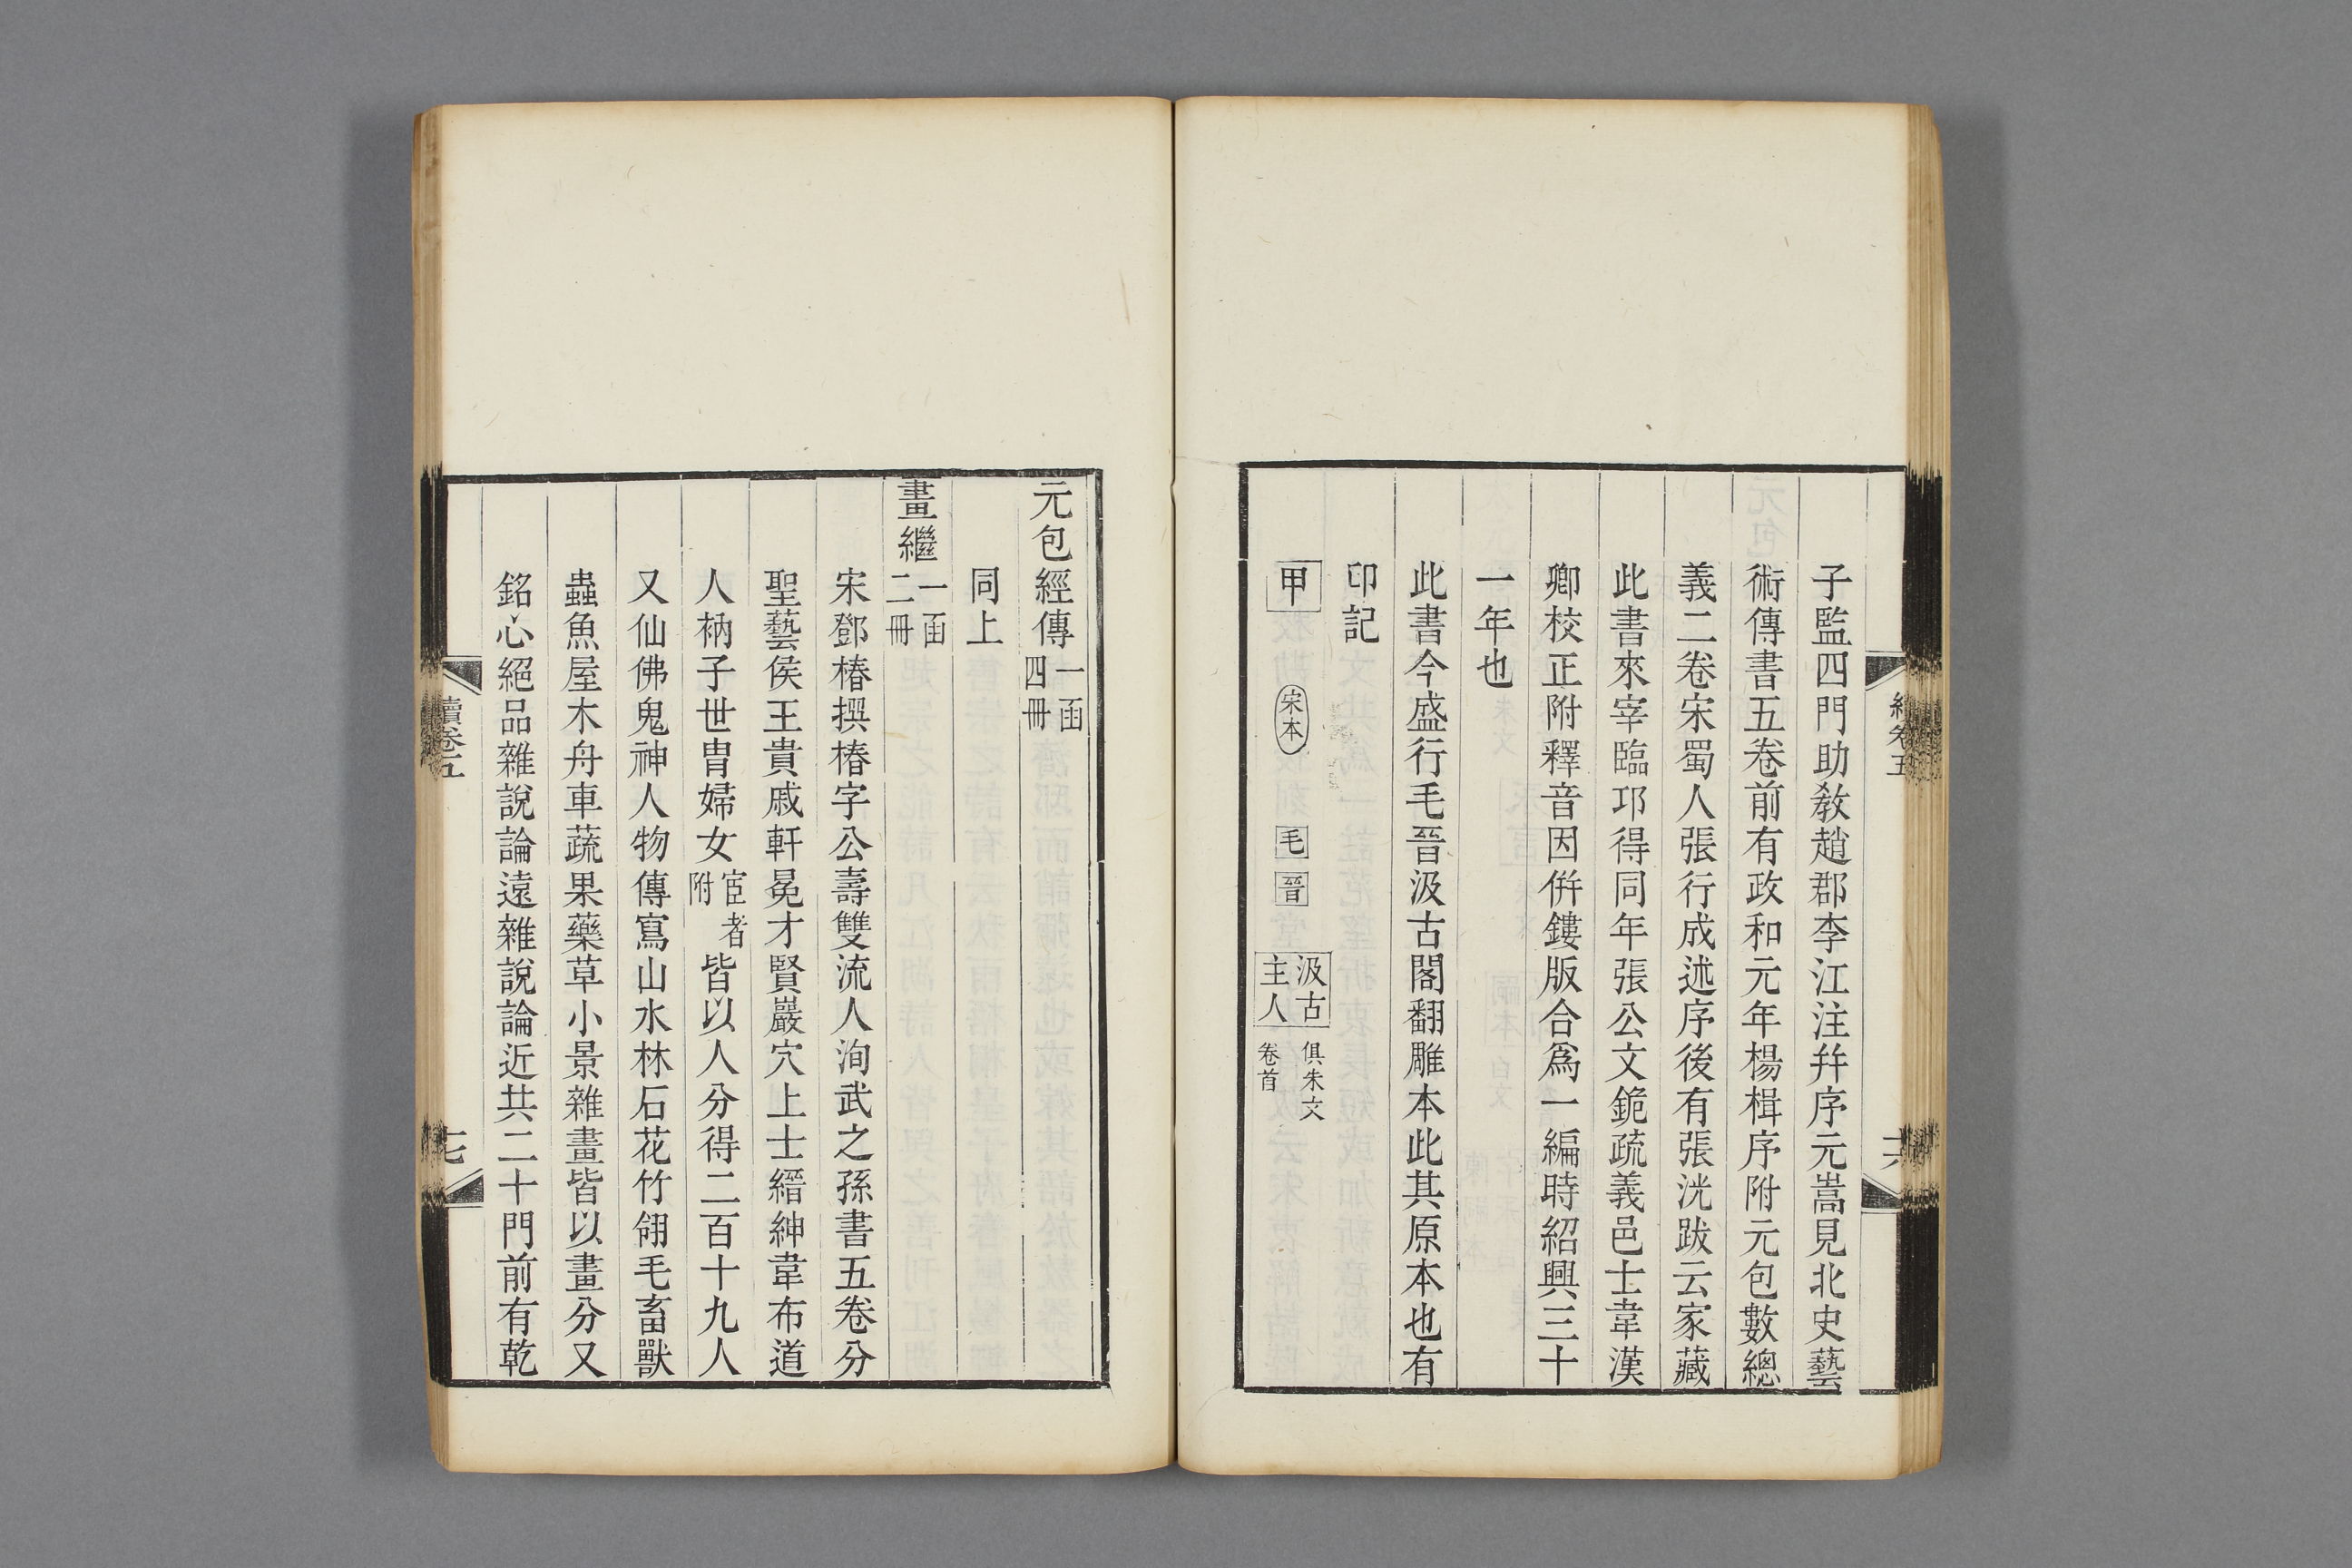 子監四門助敎趙郡李江注幷序元嵩見北史藝
術傳書五卷前有政和元年楊楫序附元包數總
義二卷宋蜀人張行成述序後有張洸跋云家藏
此書來宰臨邛得同年張公文饒疏義邑士韋漢
卿校正附釋音因倂鏤版合爲一編時紹興三十
一年也
此書今盛行毛晉汲古閣翻雕本此其原本也有
印記
甲 宋本 毛 晉 汲古主人 俱朱文卷首
元包經傳 一函四冊
同上
畫繼 一函二冊
宋鄧椿撰椿字公壽雙流人洵武之孫書五卷分
聖藝侯王貴戚軒冕才賢巖穴上士縉紳韋布道
人衲子世胄婦女宦者附皆以人分得二百十九人
又仙佛鬼神人物傳寫山水林石花竹翎毛畜獸
蟲魚屋木舟車蔬果藥草小景雜畫皆以畫分又
銘心絕品雜說論遠雜說論近共二十門前有乾
續卷五
七